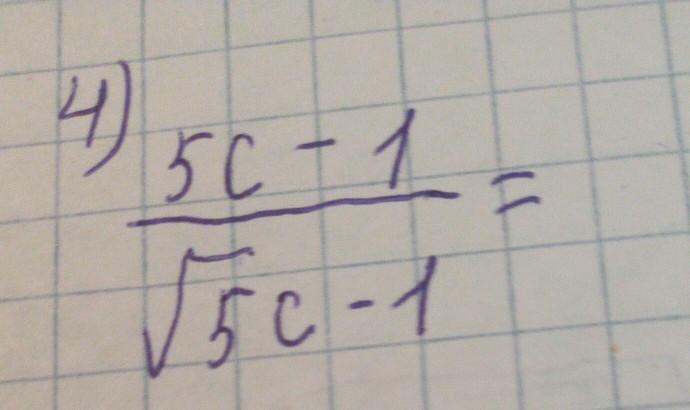 4) 5c - 1 =
√5c - 1